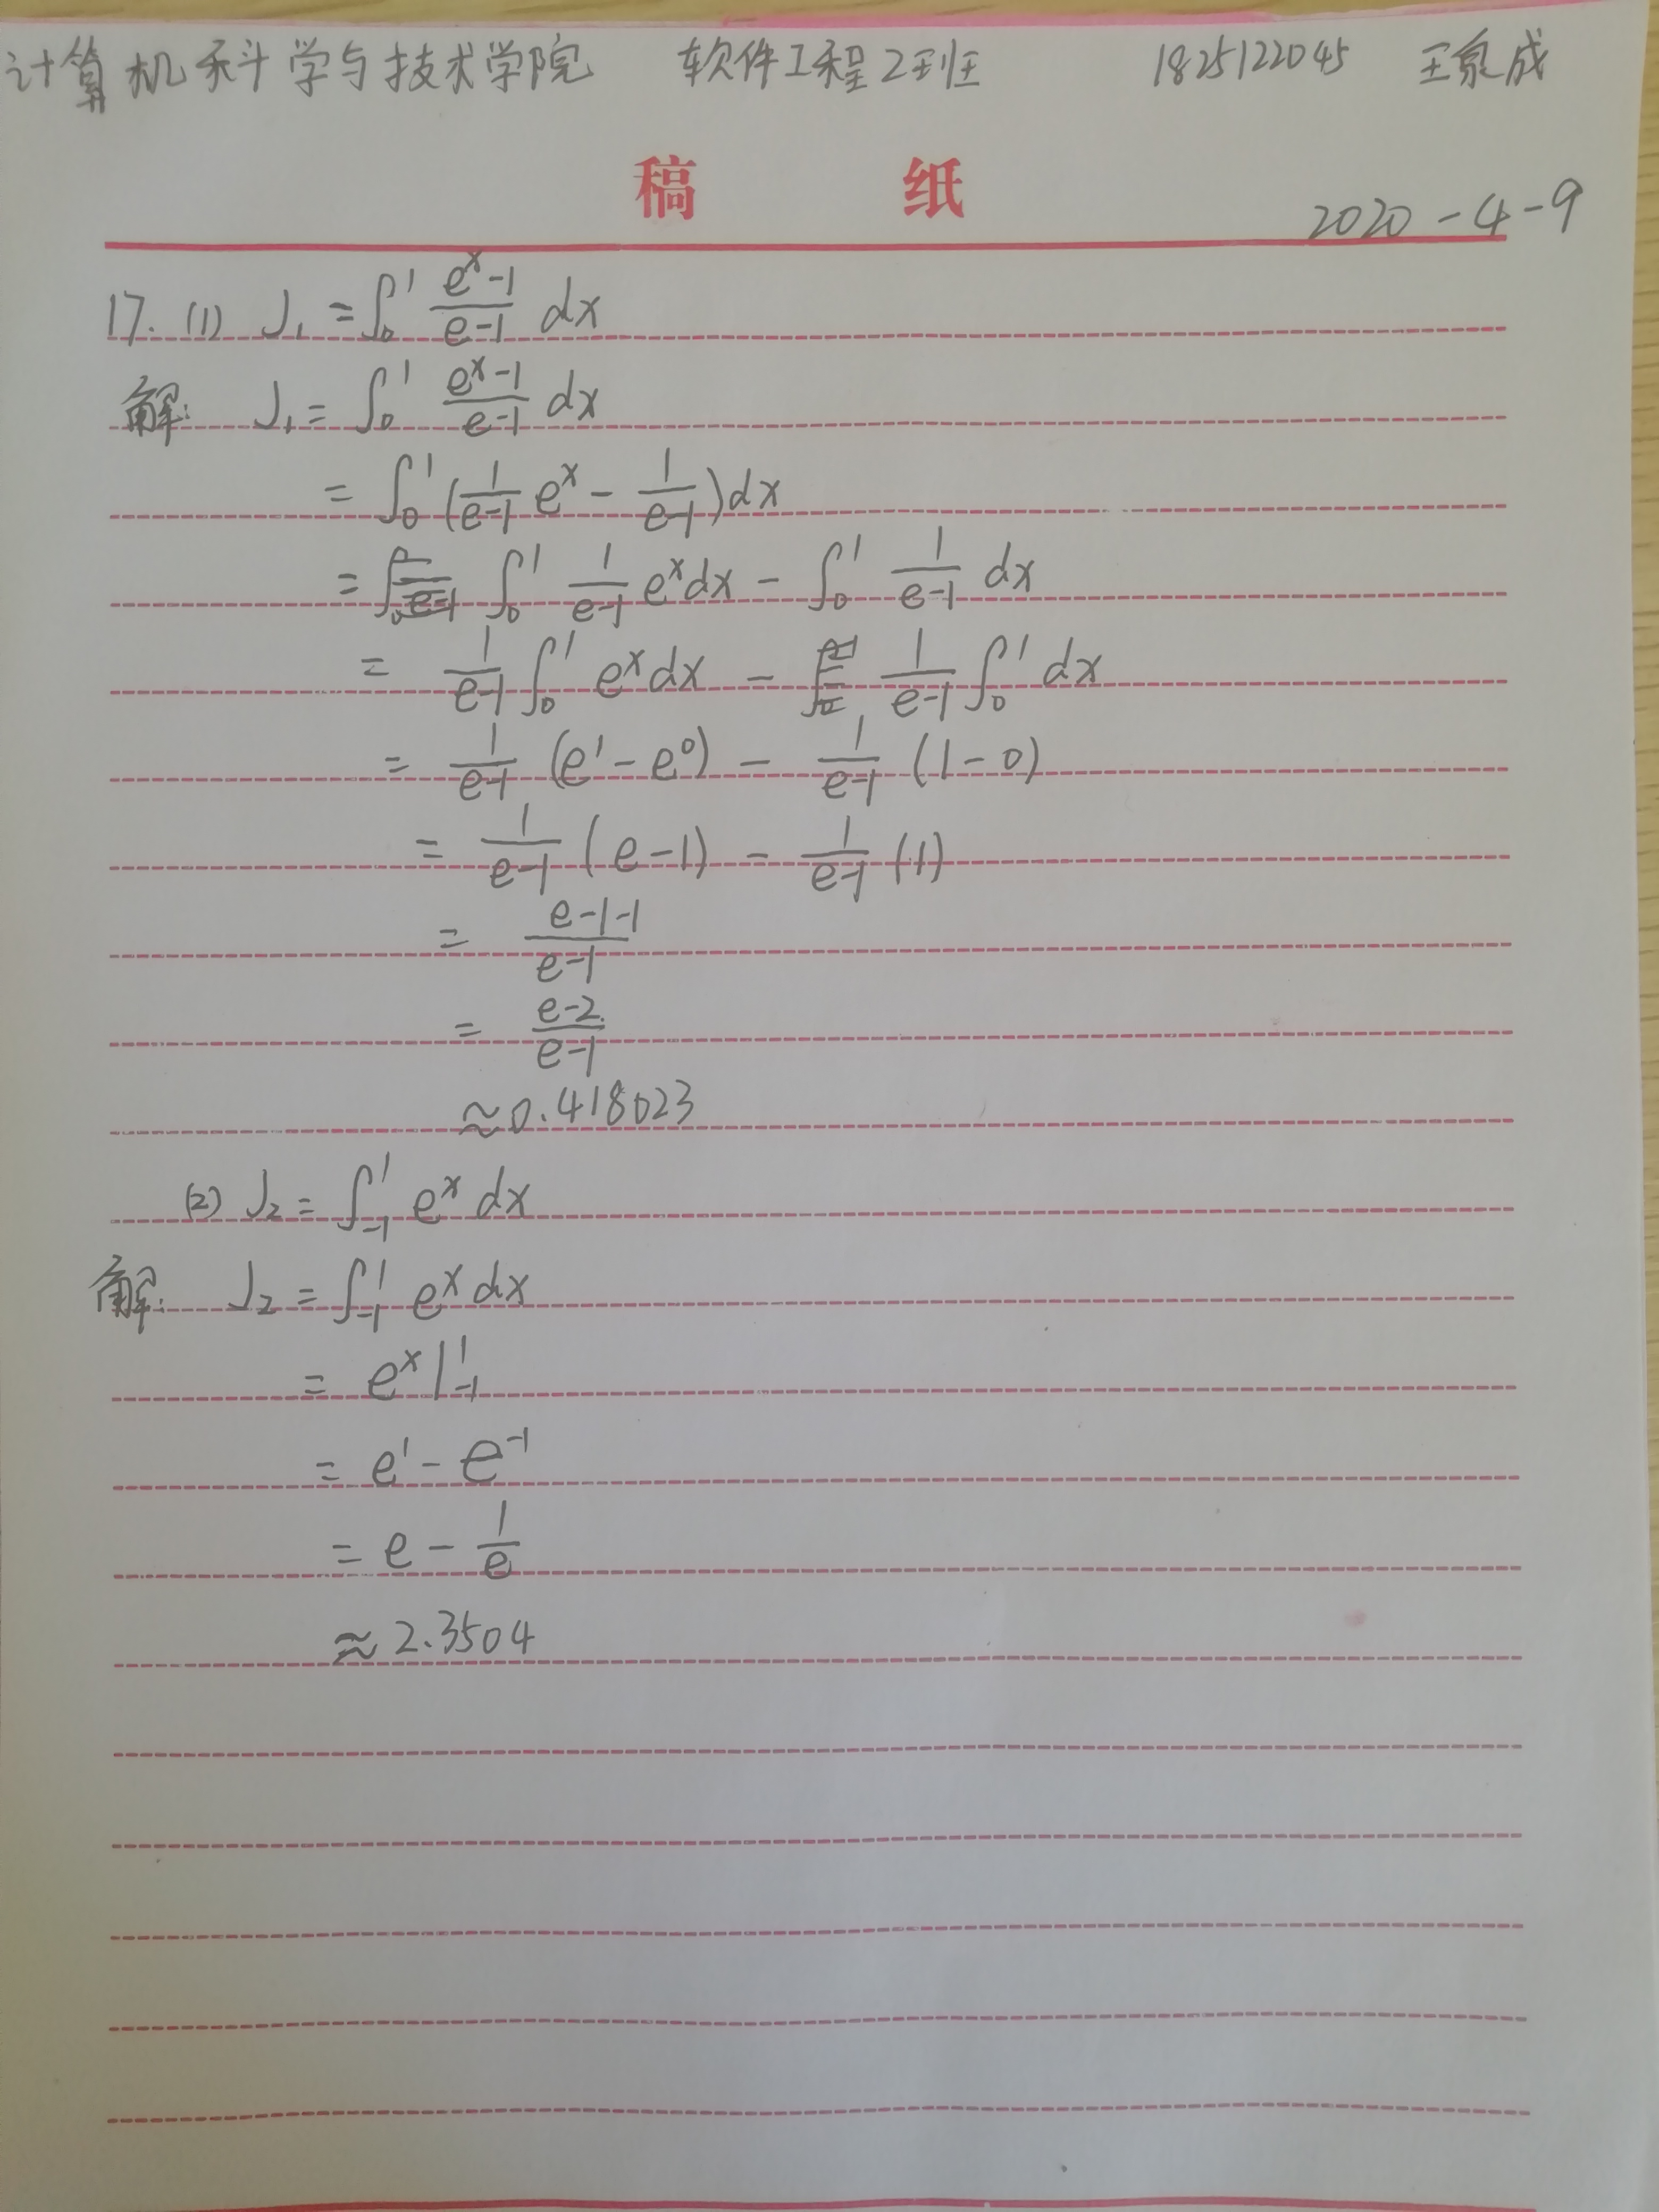 计算机科学与技术学院 软件工程2班 1825122045 王泉成
稿 纸
2020-4-9
17. (1) J₁ = ∫₀¹ (eˣ-1)/(e-1) dx
解: J₁ = ∫₀¹ (eˣ-1)/(e-1) dx
= ∫₀¹ (1/(e-1) eˣ - 1/(e-1)) dx
= ∫₀¹ 1/(e-1) eˣ dx - ∫₀¹ 1/(e-1) dx
= 1/(e-1) ∫₀¹ eˣ dx - 1/(e-1) ∫₀¹ dx
= 1/(e-1) (e¹ - e⁰) - 1/(e-1) (1-0)
= 1/(e-1) (e-1) - 1/(e-1) (1)
= (e-1-1)/(e-1)
= (e-2)/(e-1)
≈ 0.418023
(2) J₂ = ∫₋₁¹ eˣ dx
解: J₂ = ∫₋₁¹ eˣ dx
= eˣ|₋₁¹
= e¹ - e⁻¹
= e - 1/e
≈ 2.3504